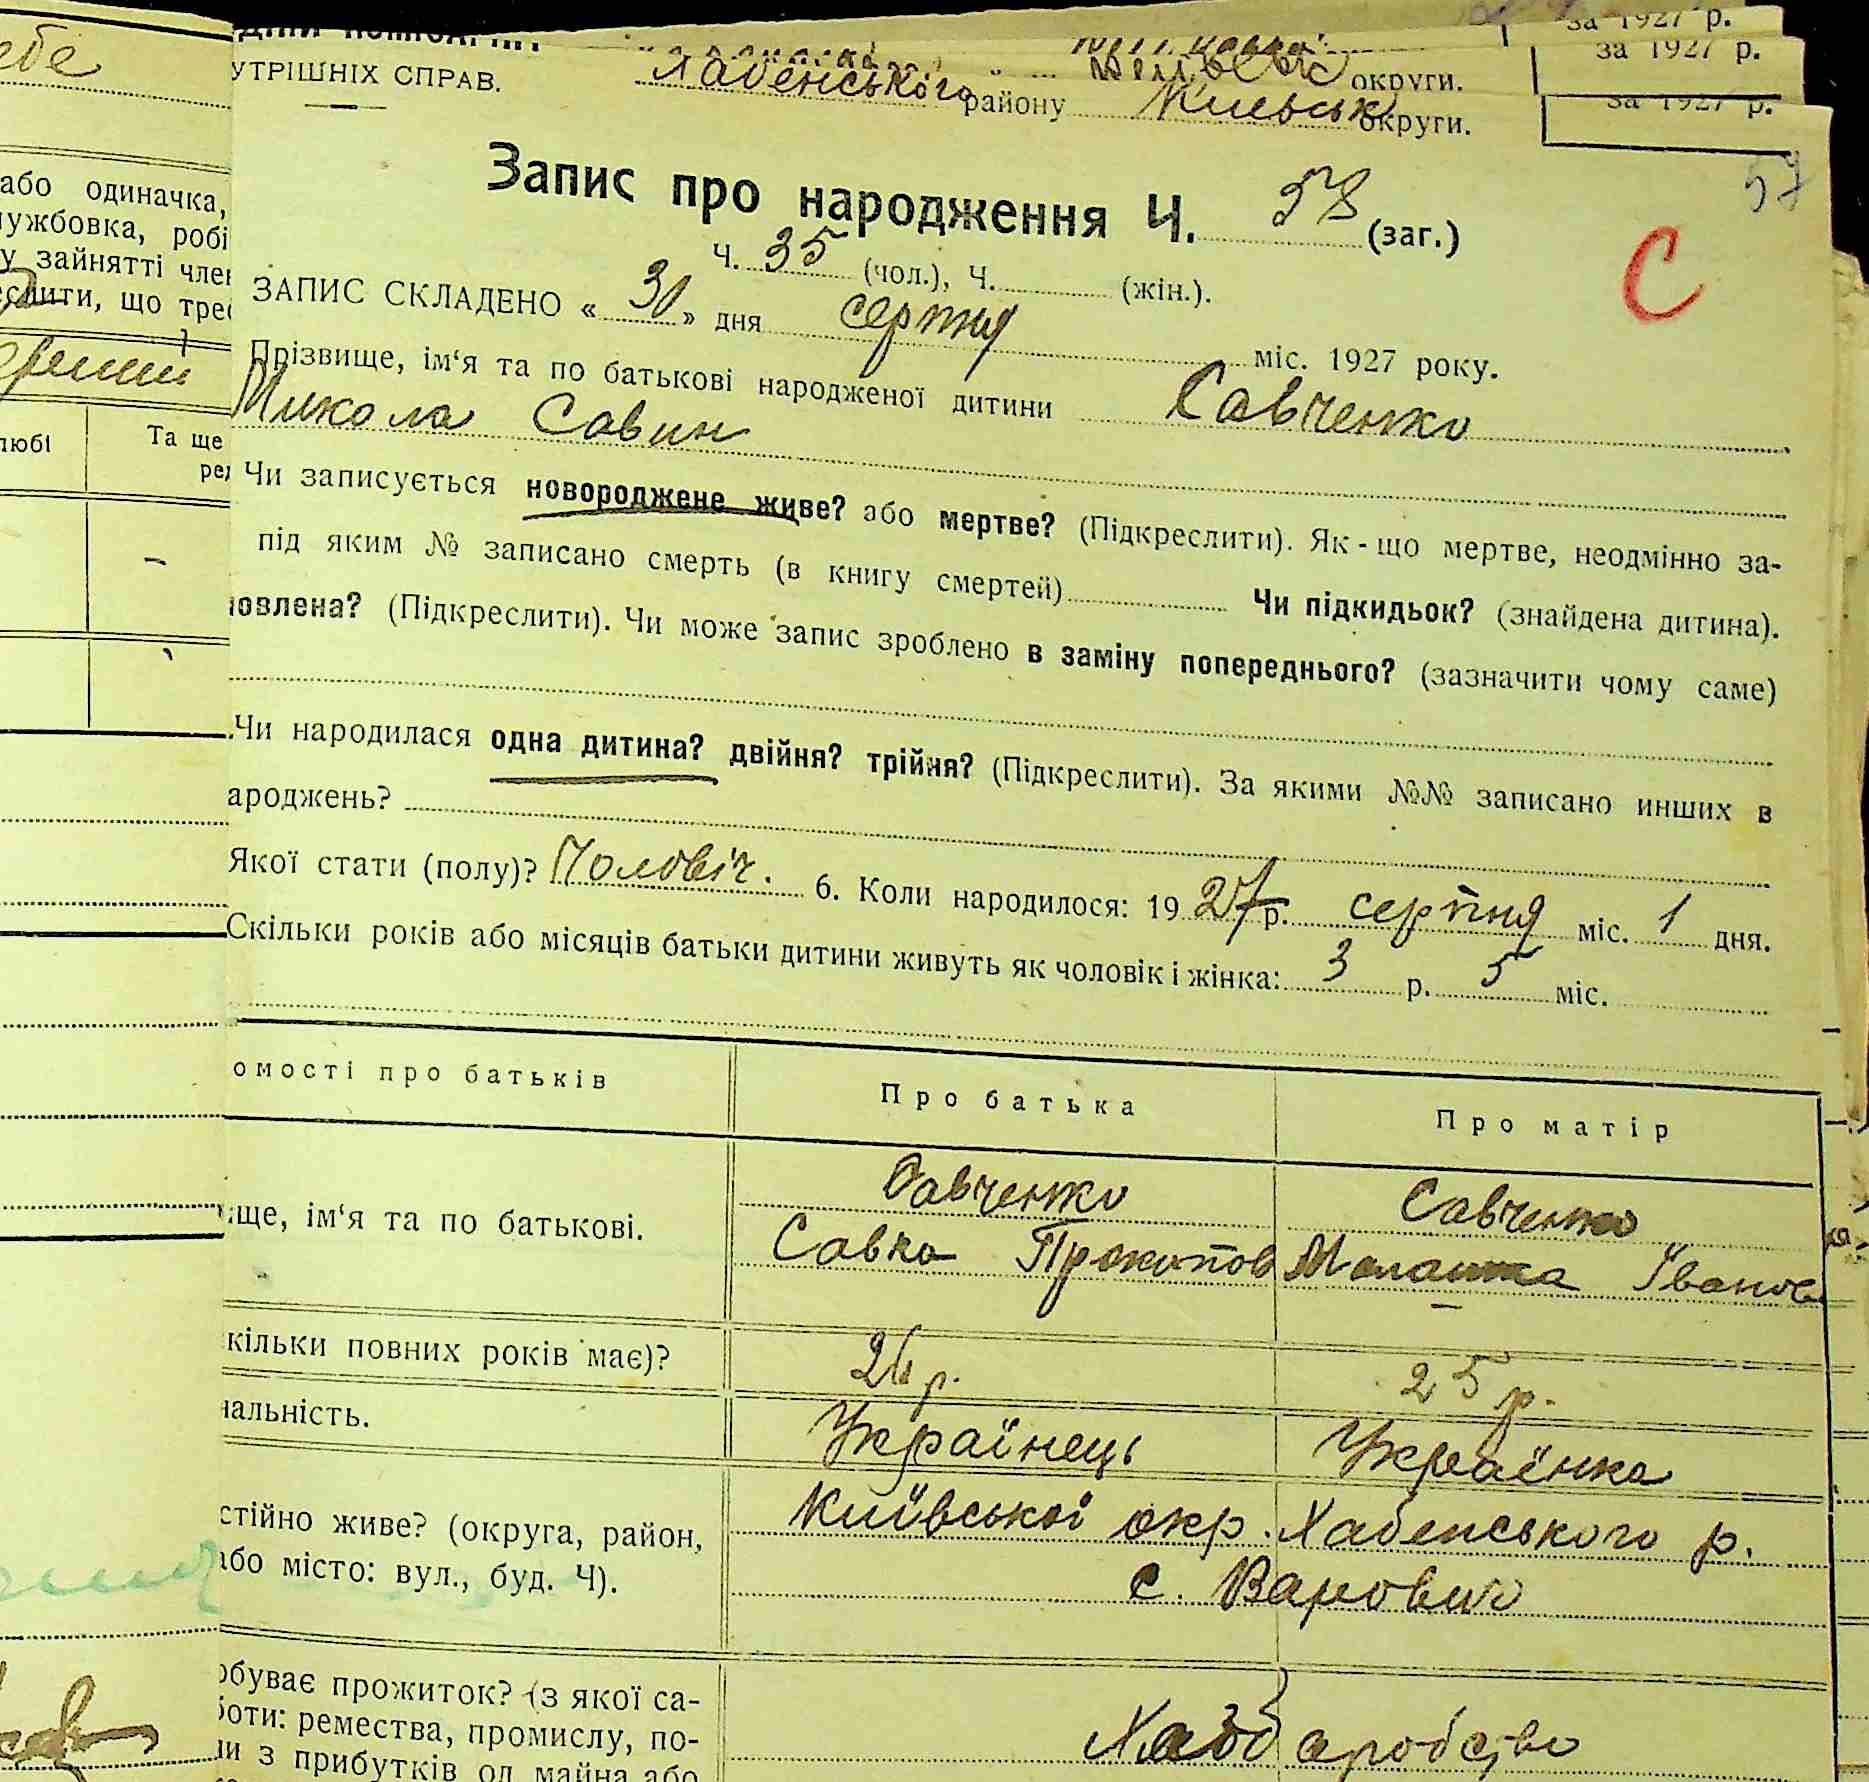 за 1927 р.
за 1927 р.
за 1927 р.
округи.
УТРІШНІХ СПРАВ.
Хабенського району Київськ округи.
57
Запис про народження Ч. 58 (заг.)
Ч. 35 (чол.), Ч. (жін.).
С
ЗАПИС СКЛАДЕНО « 30 » дня серпня міс. 1927 року.
Прізвище, ім‘я та по батькові народженої дитини Савченко
Микола Савин
Чи записується новороджене живе? або мертве? (Підкреслити). Як - що мертве, неодмінно за-
під яким № записано смерть (в книгу смертей) Чи підкидьок? (знайдена дитина).
новлена? (Підкреслити). Чи може запис зроблено в заміну попереднього? (зазначити чому саме)
Чи народилася одна дитина? двійня? трійня? (Підкреслити). За якими №№ записано инших в
ароджень?
Якої стати (полу)? Чоловіч. 6. Коли народилося: 19 27 р. серпня міс. 1 дня.
Скільки років або місяців батьки дитини живуть як чоловік і жінка: 3 р. 5 міс.
омості про батьків Про батька Про матір
Савченко Савченко
ище, ім‘я та по батькові.
Савка Прокопов Малашка Іванов
кільки повних років має)? р. 25 р.
нальність. Українець Українка
стійно живе? (округа, район, Київської окр. Хабенського р.
або місто: вул., буд. Ч). с. Варовичі
обуває прожиток? (з якої са-
боти: ремества, промислу, по- Хліборобство
и з прибутків од майна або
або одиначка,
лужбовка, робі
у зайнятті член
еслити, що треб
любі
Та ще
ред